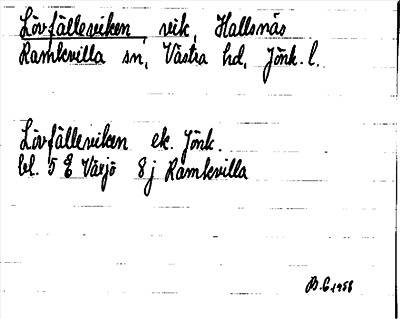 Lövfälleviken, vik, Hallsnäs
Ramkvilla sn, Västra hd, Jönk. l.
Lövfälleviken ek. Jönk.
bl. 5 E Växjö 8 j Ramkvilla
B.C. 1958